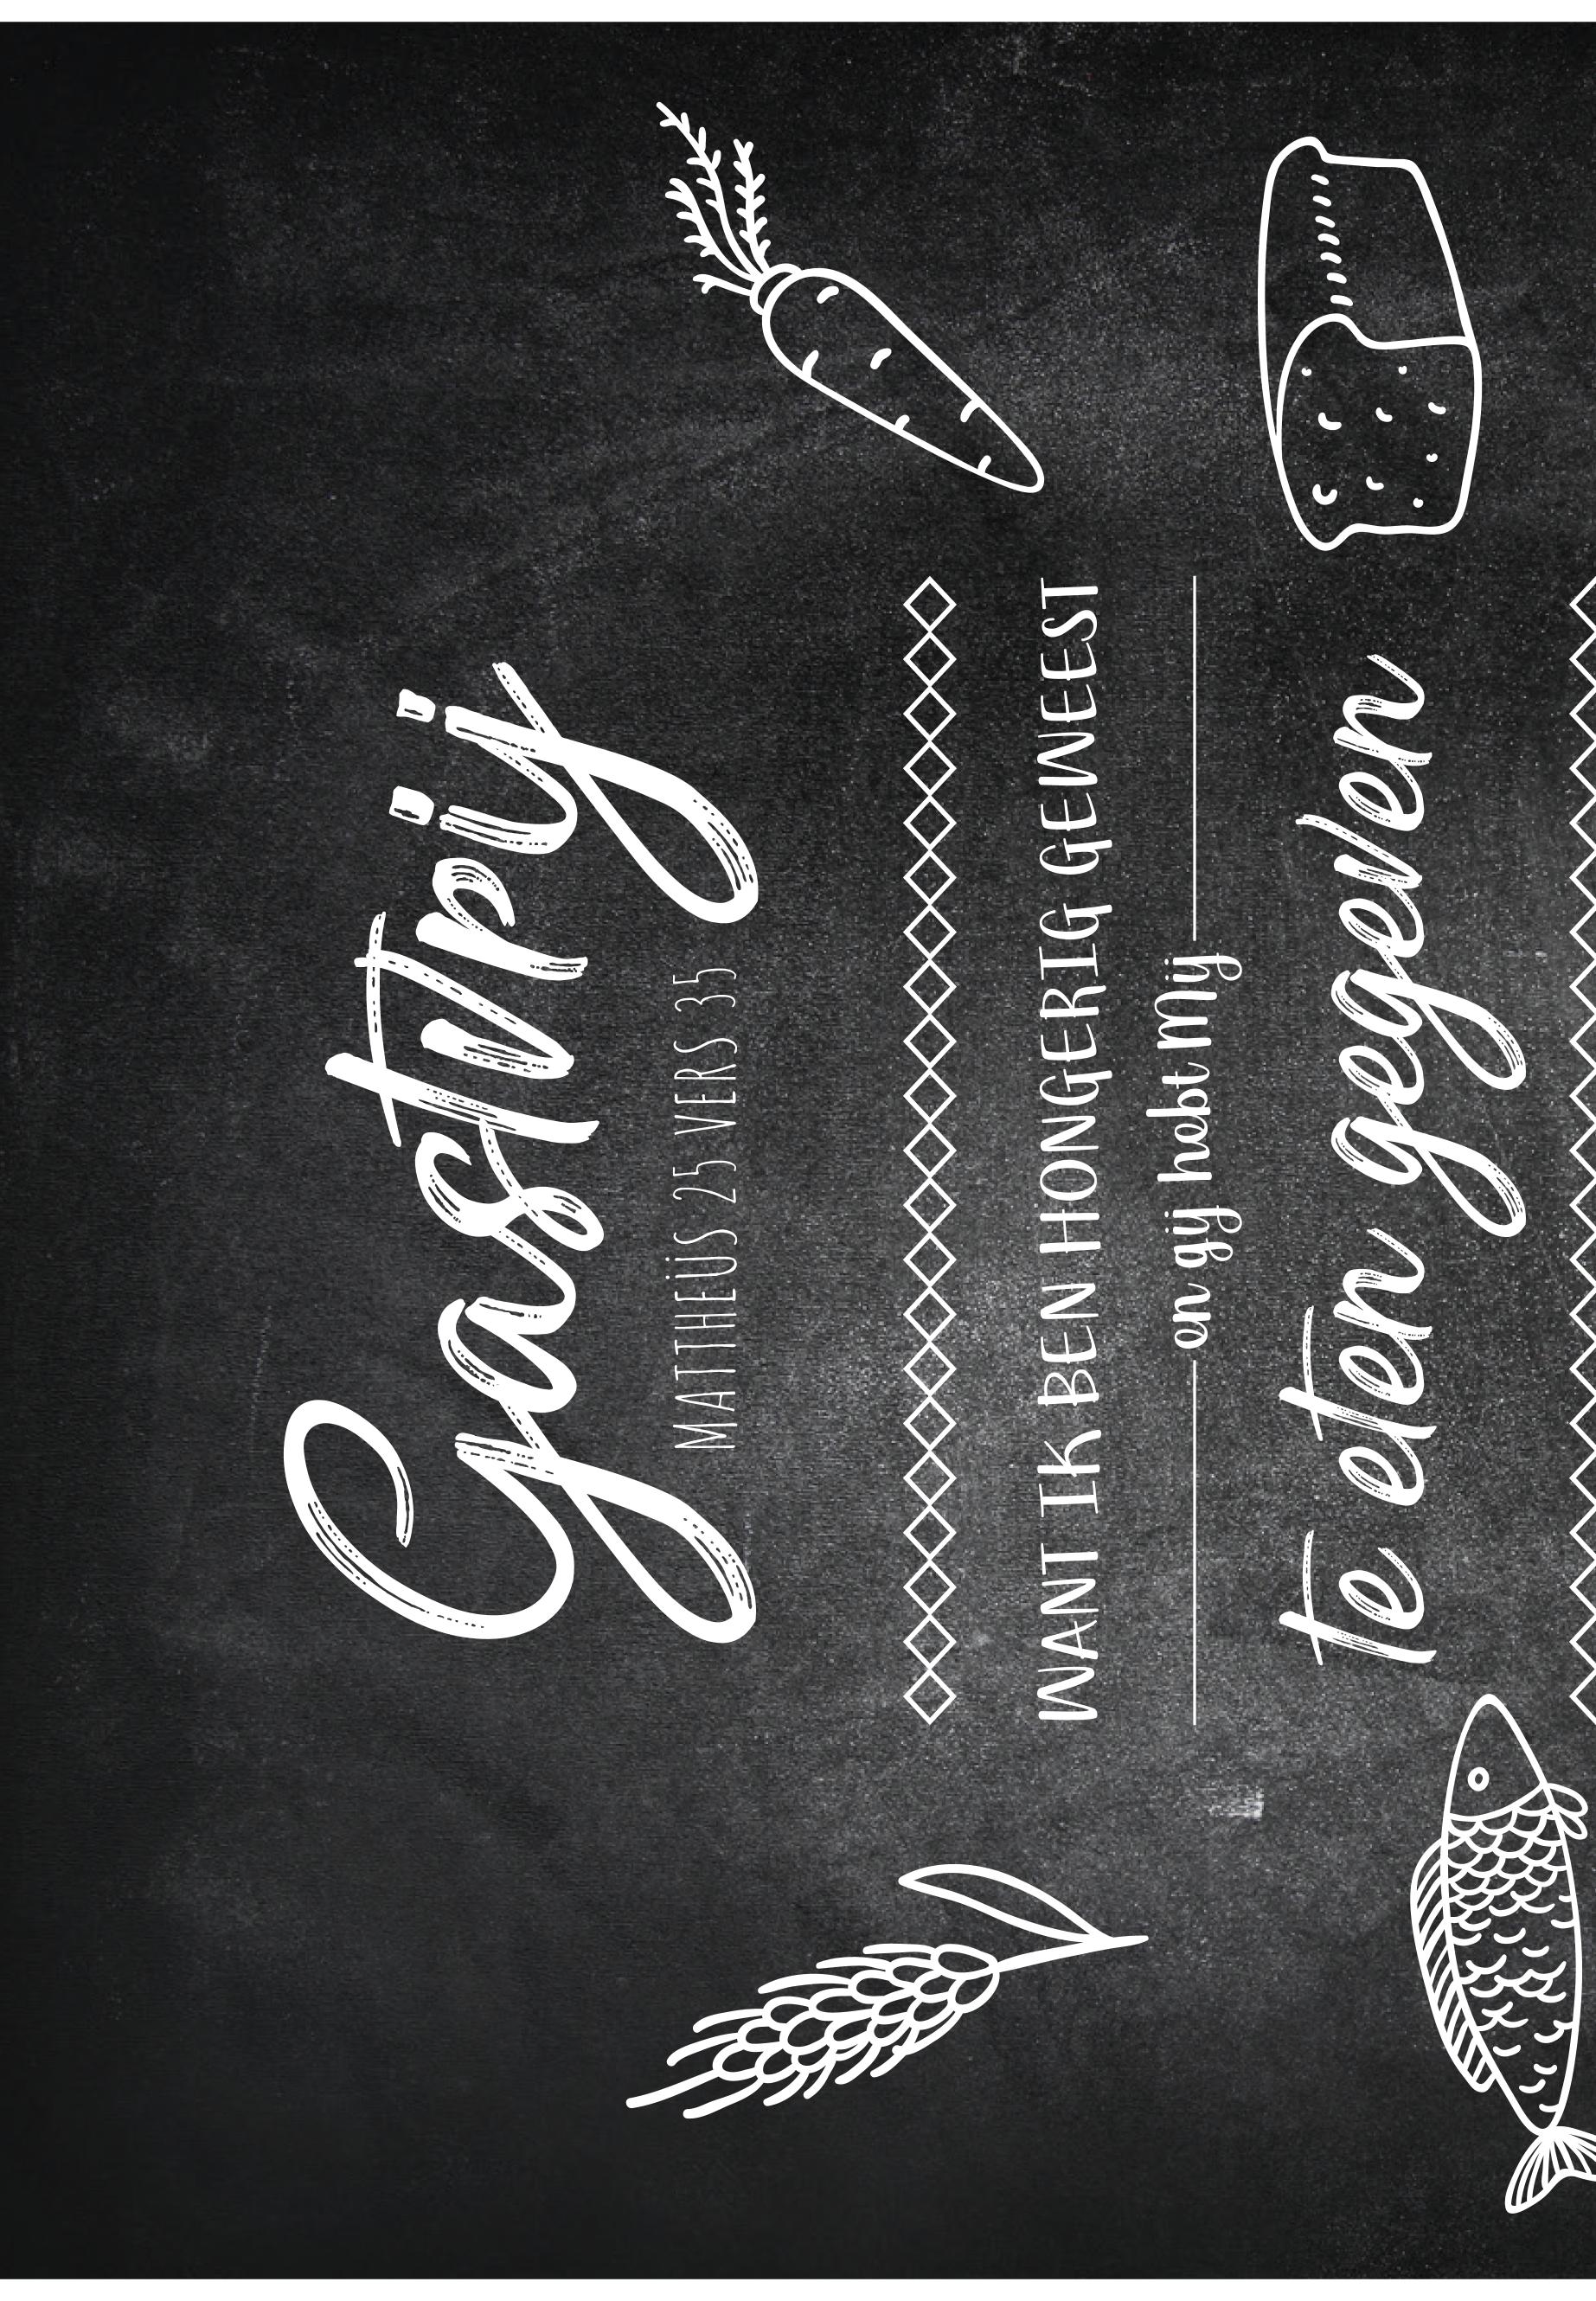 Gastvrij
MATTHEÜS 25 VERS 35
WANT IK BEN HONGERIG GEWEEST
en gij hebt Mij
te eten gegeven